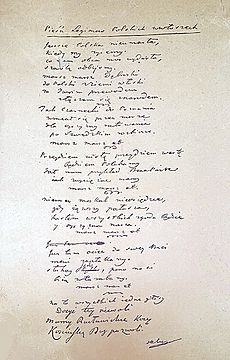 Pieśń Legionów Polskich we Włoszech
Jeszcze Polska nieumarła,
kiedy my żyjemy.
co nam obca moc wydarła,
szablą odbijemy.
marsz marsz Dąbrowski
do Polski z ziemi włoski
za Twoim przewodem
złączem się z narodem.
Jak Czarnecki do Poznania
wracał się przez morze
dla ojczyzny ratowania
po szwedzkim rozbiorze.
marsz marsz etc.
Przejdziem Wisłę przejdziem Wartę
będziem Polakami
dał nam przykład Bonaparte
jak zwyciężać mamy
marsz marsz etc.
niemiec moskal nieosiędzie,
gdy jąwszy pałasza,
hasłem wszystkich zgoda będzie
y ojczyzna nasza.
marsz marsz etc.
już tam ojciec do swej Basi
mówi zapłakany:
słuchaj jeno pono nasi
biją w tarabany.
marsz marsz etc.
na to wszystkich jedne głosy
Dosyć tej niewoli
Mamy Racławickie Kosy
Kościuszkę Bóg pozwoli